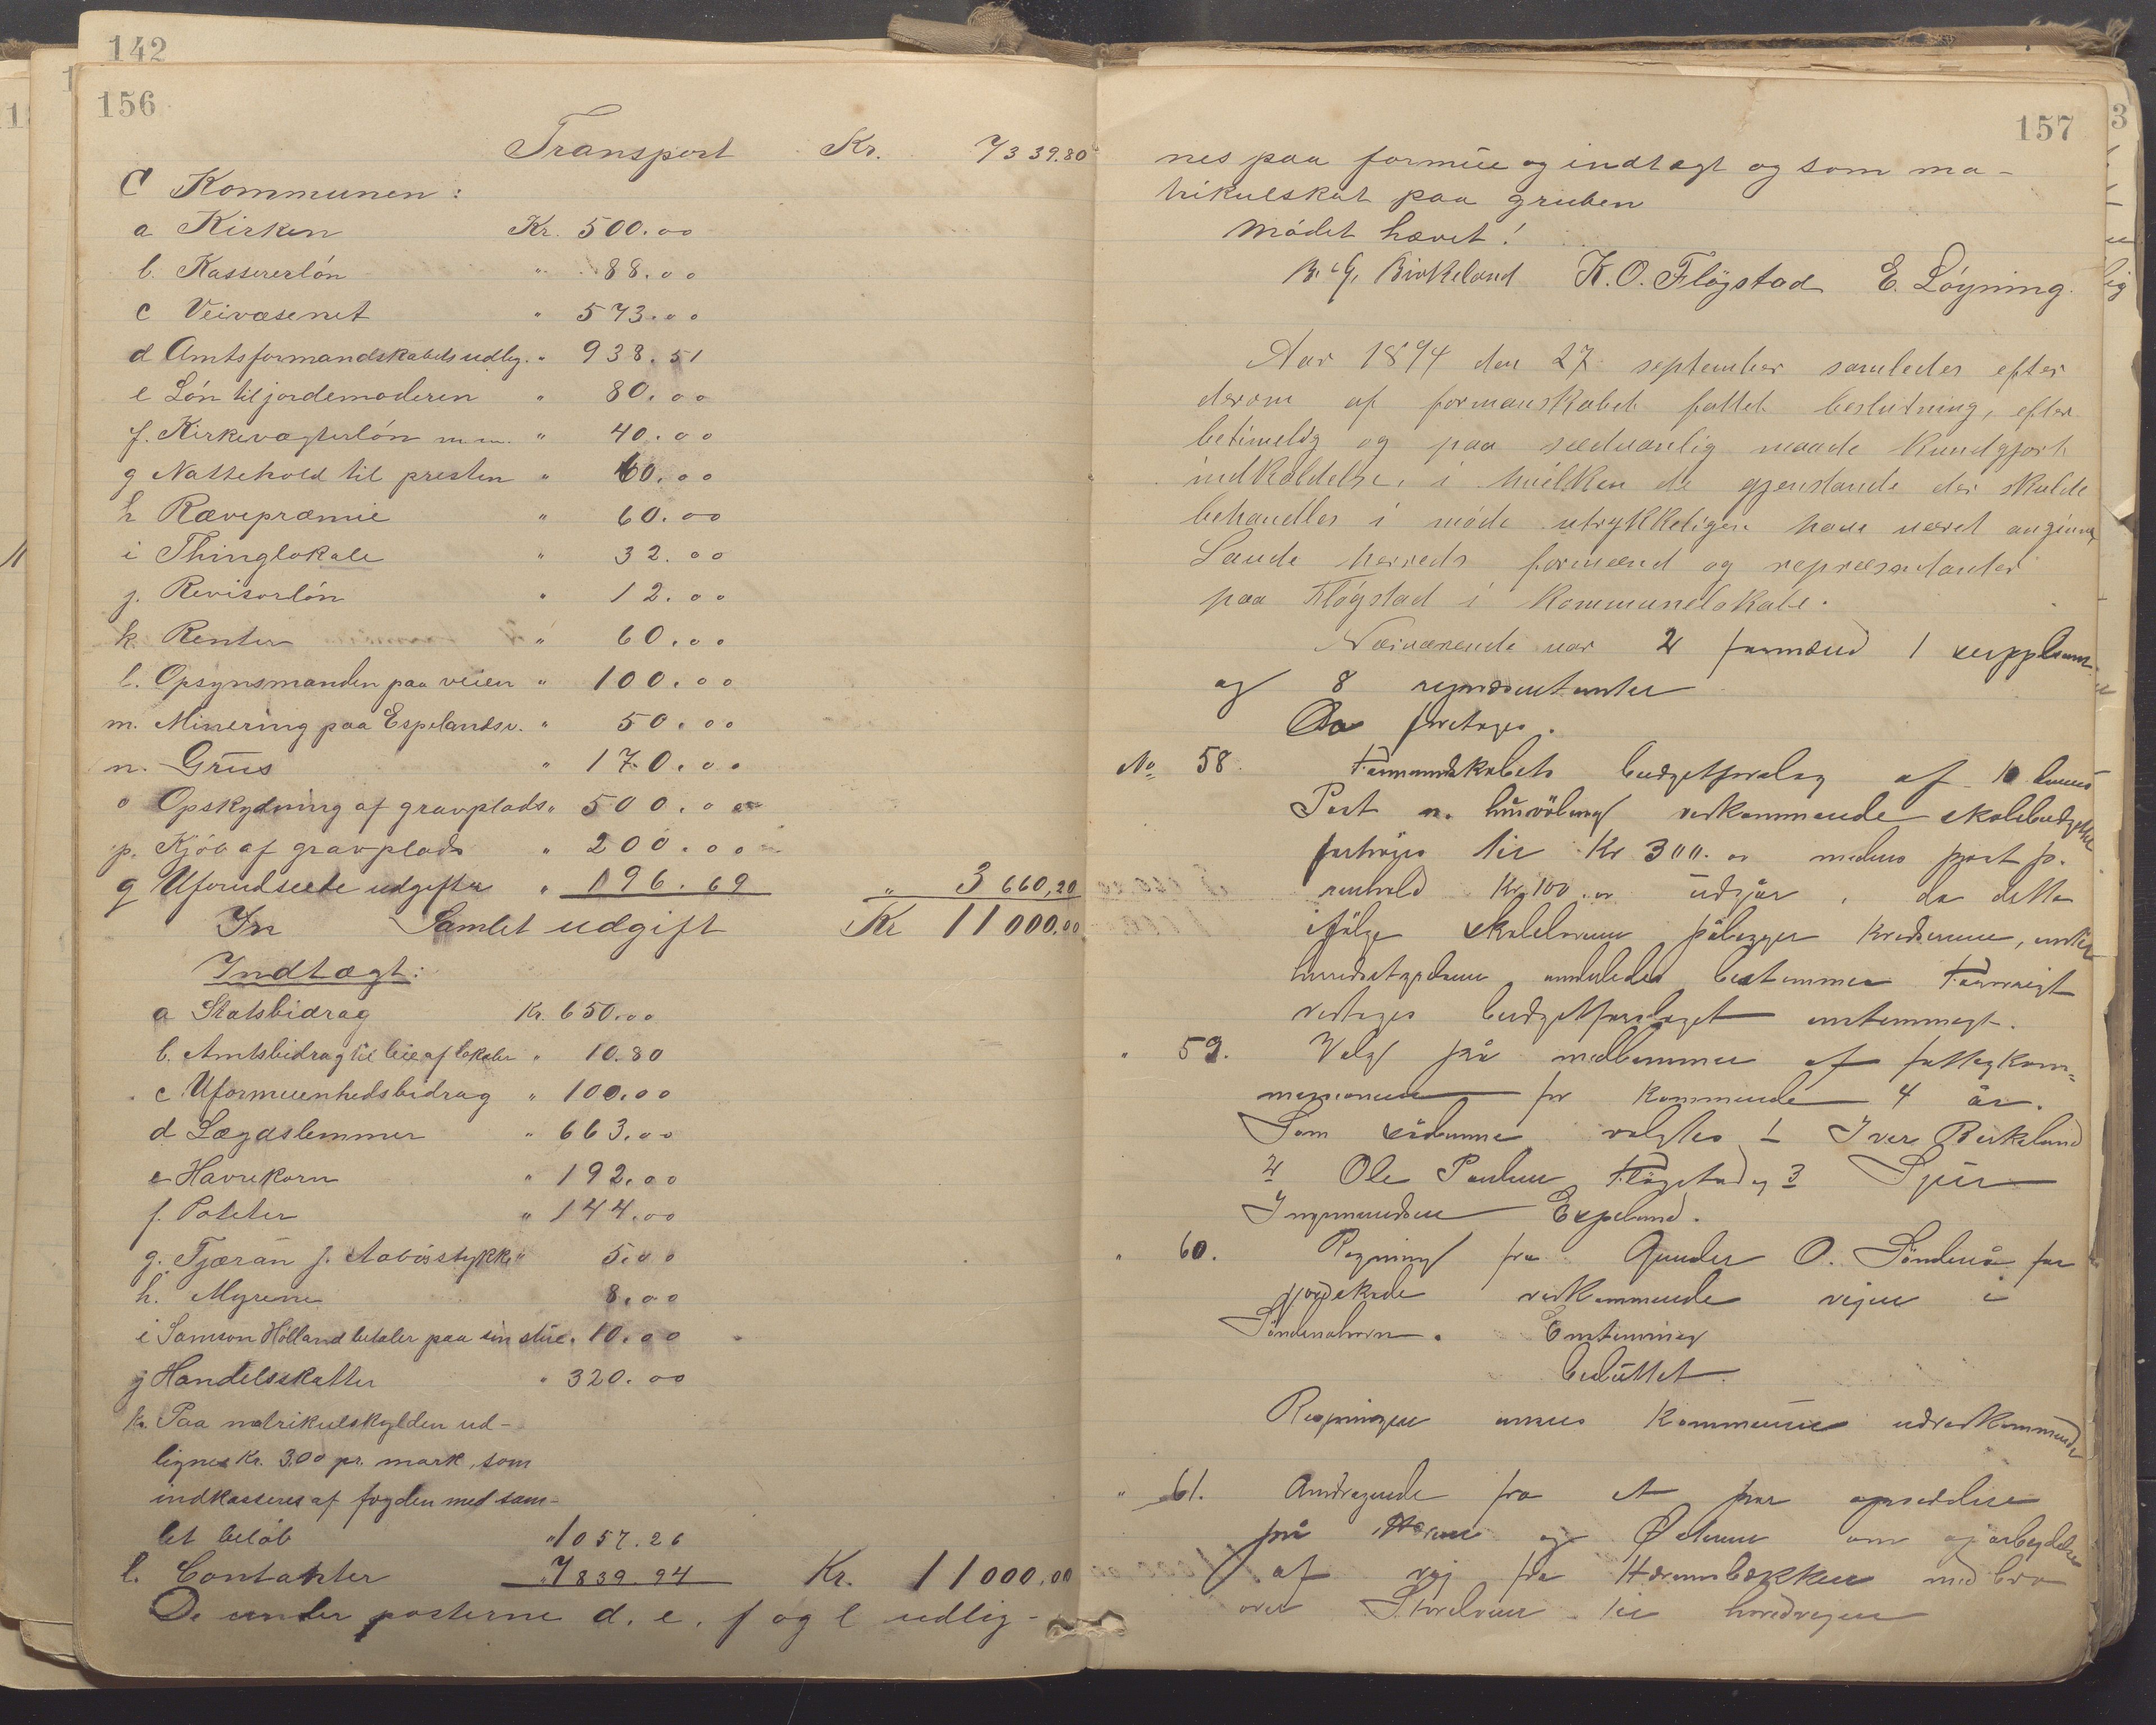 142
156
Transport Kr. 7339.80
C Kommunen:
a Kirken Kr. 500.00
b. Kassererlön " 88.00
c Veivæsenet " 573.00
d Amtsformandskabetsudlig. " 938.51
e Lön til jordemoderen " 80.00
f. Kirkevægterlön m.m. " 40.00
g Nattehold til presten " 60.00
h Rævepræmie " 60.00
i Thinglokale " 32.00
j. Revisorlön " 12.00
k. Renter " 60.00
l. Opsynsmanden paa veien " 100.00
m. Minering paa Espelandsv. " 50.00
n. Grus " 170.00
o Opskydning af gravplads " 500.00
p. Kjöb af gravplads " 200.00
q Uforudseete udgifter " 196.69 " 3660,20
Samlet udgift Kr 11000.00
Indtægt:
a Statsbidrag Kr. 650.00
b. Amtsbidrag til leie af lokaler " 10.80
c Uformuenhedsbidrag " 100.00
d Lægdslemmer " 663.00
e Havrekorn " 192.00
f. Poteter " 144.00
g. Tjæran f. Aaböstykke " 5.00
h. Myrene 8.00
i Samson Hölland betaler paa sin stue. 10.00
j Handelsskatter " 320.00
k. Paa matrikulskylden ud-
lignes Kr. 3.00 pr. mark, som
indkasseres af fogden med sam-
let belöb " 1057.26
l. Contanter " 7839.94 Kr. 11000.00
De under posterne d. e. f og l udlig-
157
nes paa formue og indtægt og som ma-
trikulskat paa gruben
Mödet hævet!
B. G. Birkeland K. O. Flögstad E. Löyning.
Aar 1894 den 27 september samledes efter
derom af formanskabet fattet beslutning, efter
betimelig og paa sædvanlig maade kundgjort
indkaldelse, i hvilken de gjenstande der skulde
behandles i möde utrykkeligen have været angivne,
Saude herreds formænd og repræsentanter
paa Flögstad i Kommunelokale.
Nærværende var 2 formænd 1 suppleant
og 8 repræsentanter
Da foretoges.
No 58. Formandskabets budgetforslag af 10 dennes
Post n. vedkommende skolebudgettet
forhöjes til Kr 300.00 medens post p.
renhold Kr 100.00 udgår, da dette
ifölge skoleloven pålægger kredsene, uden
herredsstyrelsen anderledes bestemmer Forövrigt
vedtoges budgetforslaget enstemmigt.
" 59. Valg på medlemmer af fattigkom-
missionen for kommende 4 år.
Som sådanne valgtes 1 Iver Birkeland
2 Ole Paulsen Flögstad og 3 Sjur
Ingemundsen Espeland.
" 60. Regning fra Gunder O. Söndenå for
jordskade vedkommende vejen i
Söndenåhavn. Enstemmig
besluttet.
Regningen anses kommunen uvedkommende
" 61. Andragende fra et par opsiddere
på og Östrem om oparbejdelse
af vej fra med bro
over Storelven til hovedvejen
3